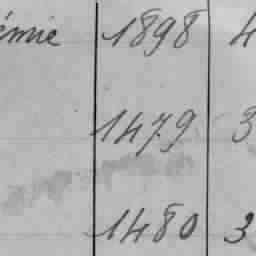 émie 1898 4
1479 3
1480 3